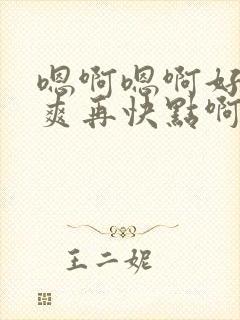 嗯啊嗯啊好
爽再快點啊
王二妮